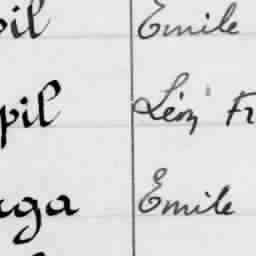 oil Emile
pil Léon Fr
rga Emile